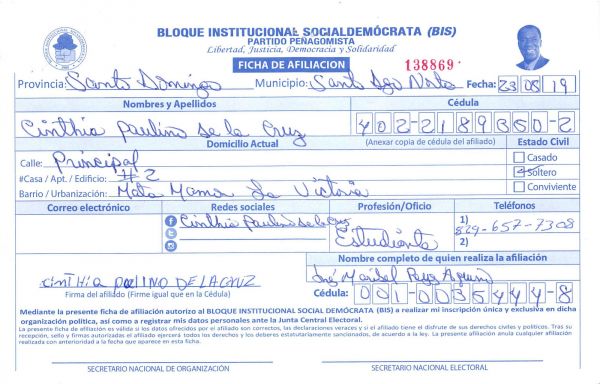 BLOQUE INSTITUCIONAL SOCIALDEMÓCRATA (BIS)
PARTIDO PEÑAGOMISTA
Libertad, Justicia, Democracia y Solidaridad
FICHA DE AFILIACION
138869
Provincia: Santo Domingo Municipio: Santo Dgo Norte Fecha: 23 08 19
Nombres y Apellidos Cédula
Cinthia Paulino De la Cruz 402-2189350-2
Domicilio Actual (Anexar copia de cédula del afiliado) Estado Civil
Calle: Principal Casado
#Casa / Apt. / Edificio: #2 Soltero
Barrio / Urbanización: Mata Mamon La Victoria Conviviente
Correo electrónico Redes sociales Profesión/Oficio Teléfonos
Cinthia Paulino De la Cruz Estudiante 1) 829-657-7308
2)
Nombre completo de quien realiza la afiliación
CINTHIA PAULINO DE LA CRUZ Maribel
Firma del afiliado (Firme igual que en la Cédula) Cédula: 001-0035444-8
Mediante la presente ficha de afiliación autorizo al BLOQUE INSTITUCIONAL SOCIAL DEMÓCRATA (BIS) a realizar mi inscripción única y exclusiva en dicha
organización política, así como a registrar mis datos personales ante la Junta Central Electoral.
La presente ficha de afiliación es válida si los datos ofrecidos por el afiliado son correctos, las declaraciones veraces y si el afiliado tiene el disfrute de sus derechos civiles y políticos. Tras su
recepción, sello y firmas autorizadas el afiliado ejercerá todos los derechos y los deberes estatutariamente sancionados, de acuerdo a la ley. La presente afiliación anula cualquier afiliación
realizada con anterioridad a la fecha que aparece en esta ficha.
SECRETARIO NACIONAL DE ORGANIZACIÓN SECRETARIO NACIONAL ELECTORAL